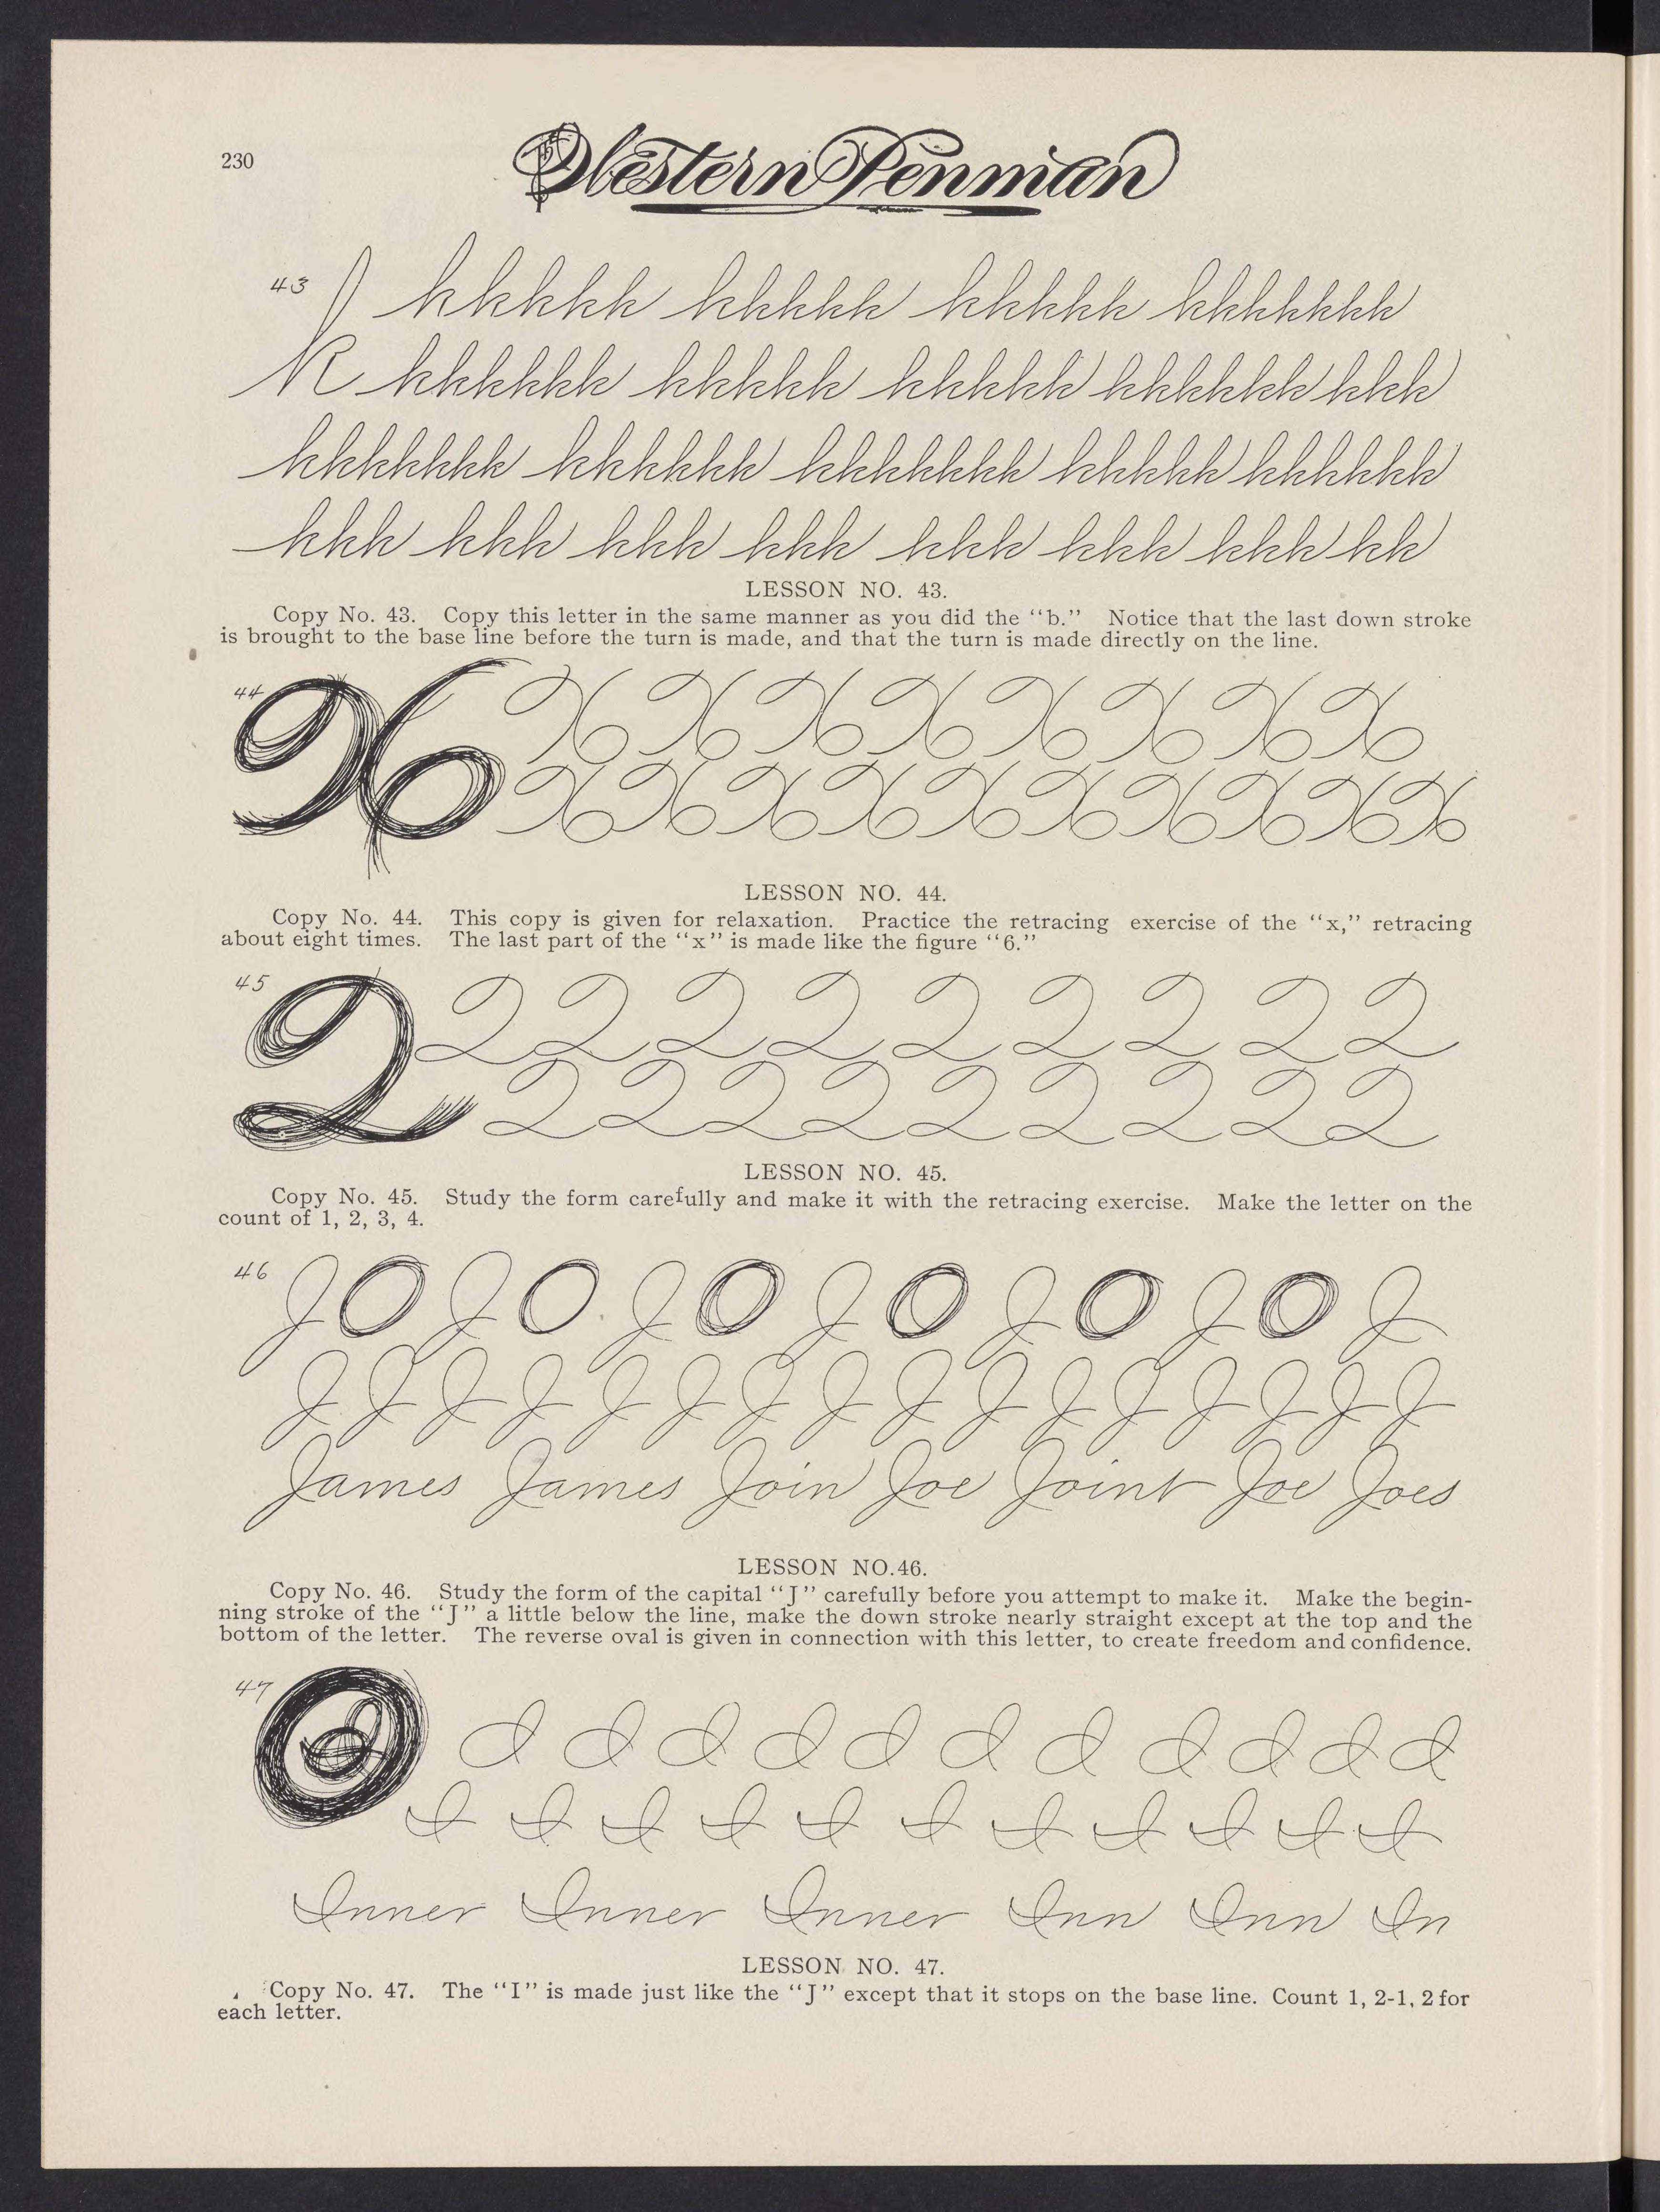 230
Western Penman
43 kkkkk kkkkk kkkkk kkkkkkk
k kkkkkk kkkkk kkkkk kkkkkk kkk
kkkkkkk kkkkkk kkkkkkk kkkkk kkkkkk
kkk kkk kkk kkk kkk kkk kkk kk
LESSON NO. 43.
Copy No. 43. Copy this letter in the same manner as you did the “b.” Notice that the last down stroke
is brought to the base line before the turn is made, and that the turn is made directly on the line.
44 X X X X X X X X X
X X X X X X X X X X
LESSON NO. 44.
Copy No. 44. This copy is given for relaxation. Practice the retracing exercise of the “x,” retracing
about eight times. The last part of the “x” is made like the figure “6.”
45 Q Q Q Q Q Q Q Q Q Q
Q Q Q Q Q Q Q Q Q
LESSON NO. 45.
Copy No. 45. Study the form carefully and make it with the retracing exercise. Make the letter on the
count of 1, 2, 3, 4.
46 J O J O J O J O J O J O J
J J J J J J J J J J J J J J J
James James Join Joe Joint Joe Joes
LESSON NO.46.
Copy No. 46. Study the form of the capital “J” carefully before you attempt to make it. Make the begin-
ning stroke of the “J” a little below the line, make the down stroke nearly straight except at the top and the
bottom of the letter. The reverse oval is given in connection with this letter, to create freedom and confidence.
47 I I I I I I I I I I
I I I I I I I I I I I
Inner Inner Inner Inn Inn In
LESSON NO. 47.
Copy No. 47. The “I” is made just like the “J” except that it stops on the base line. Count 1, 2-1, 2 for
each letter.